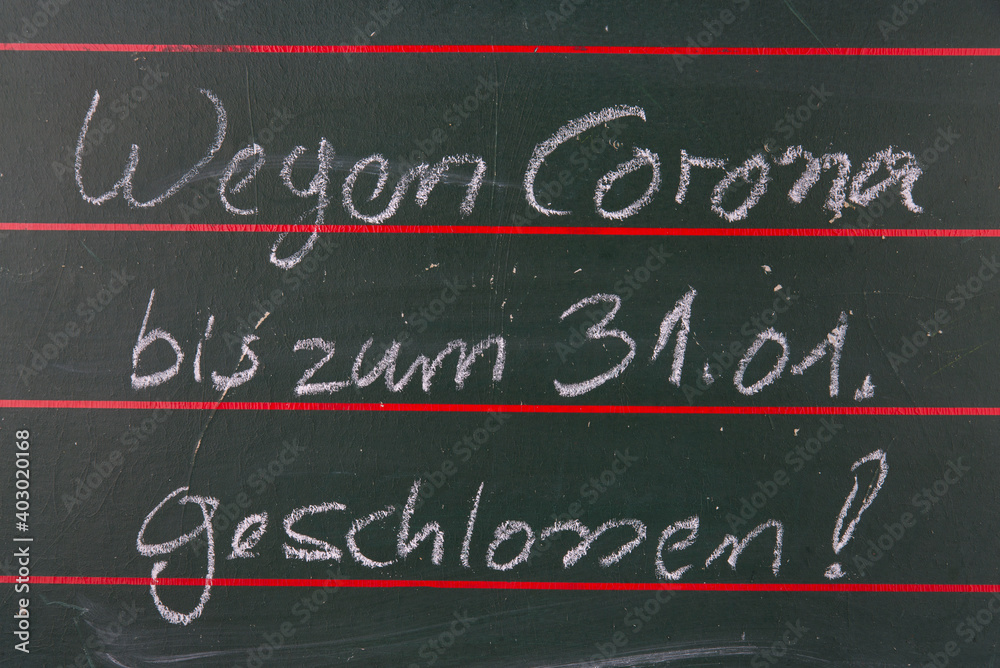 Wegen Corona
bis zum 31.01.
geschlossen!
Adobe Stock | #403020168